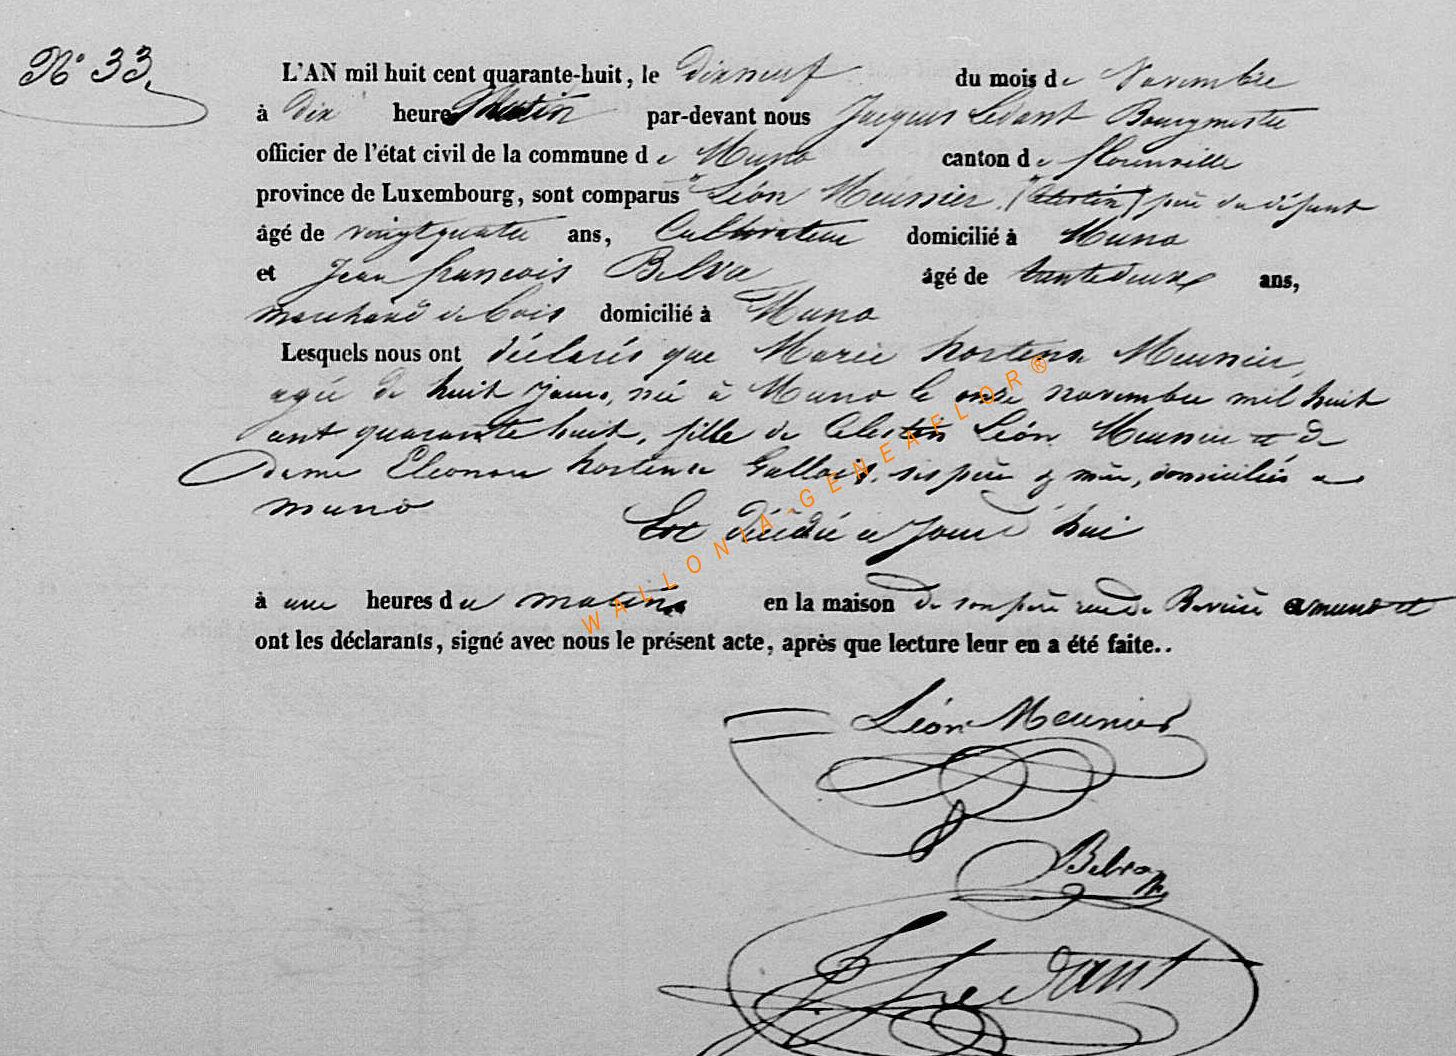 N° 33.
L'AN mil huit cent quarante-huit, le dixneuf du mois de Novembre
à dix heure Matin par-devant nous Jacques Ledant Bourgmestre
officier de l'état civil de la commune de Muno canton de florenville
province de Luxembourg, sont comparus Léon Meunier, (Célestin) père du défunt
âgé de vingtquatre ans, Cultivateur domicilié à Muno
et Jean françois Belva âgé de trantedeux ans,
marchand de bois domicilié à Muno
Lesquels nous ont déclarés que Marie hortense Meunier,
agée de huit jours, née à Muno le onze novembre mil huit
cent quarante huit, fille de Celestin Léon Meunier et de
Dame Eleonore hortense Gallois, ses père & mère, domiciliés a
muno
Est décédé ce jourd'hui
à une heures du matin en la maison de son père rue de a muno et
ont les déclarants, signé avec nous le présent acte, après que lecture leur en a été faite..
WALLONIA-GENEAFLOR®
Léon Meunier
Belva
J. Ledant